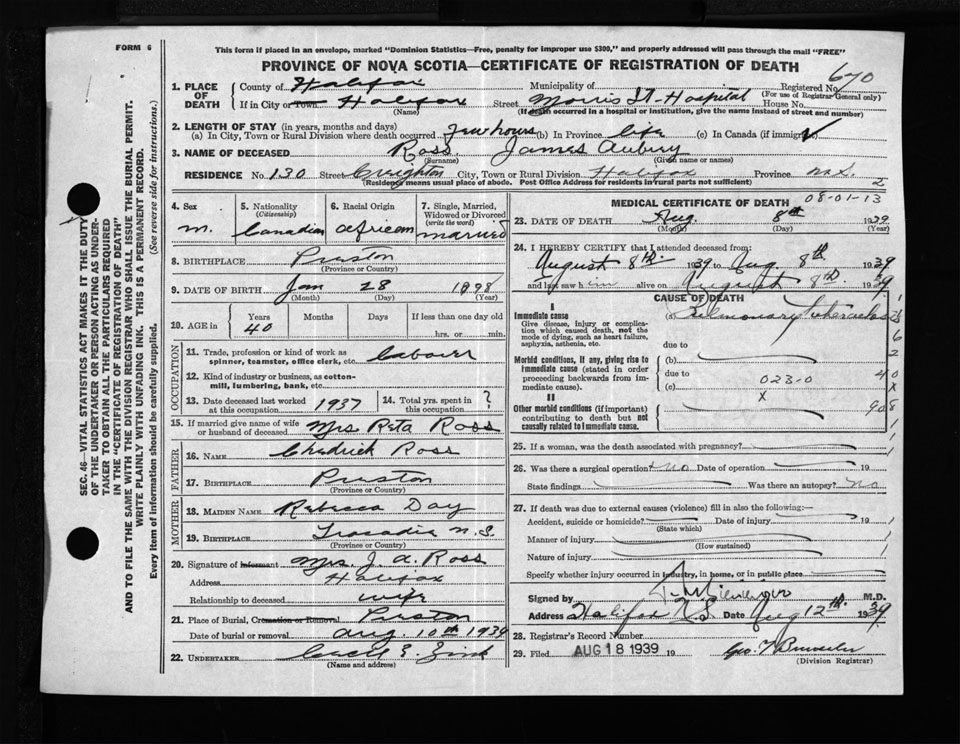 FORM 6
This form if placed in an envelope, marked "Dominion Statistics—Free, penalty for improper use $300," and properly addressed will pass through the mail "FREE"
PROVINCE OF NOVA SCOTIA—CERTIFICATE OF REGISTRATION OF DEATH
SEC. 46—VITAL STATISTICS ACT MAKES IT THE DUTY
OF THE UNDERTAKER OR PERSON ACTING AS UNDER-
TAKER TO OBTAIN ALL THE PARTICULARS REQUIRED
IN THE "CERTIFICATE OF REGISTRATION OF DEATH"
AND TO FILE THE SAME WITH THE DIVISION REGISTRAR WHO SHALL ISSUE THE BURIAL PERMIT.
WRITE PLAINLY WITH UNFADING INK. THIS IS A PERMANENT RECORD.
Every item of information should be carefully supplied. (See reverse side for instructions.)
1. PLACE OF DEATH
County of Halifax Municipality of Registered No. 670
(For use of Registrar General only)
If in City or Town Halifax Street Morris St. Hospital House No.
(Name) (If death occurred in a hospital or institution, give the name instead of street and number)
2. LENGTH OF STAY (in years, months and days)
(a) In City, Town or Rural Division where death occurred few hours (b) In Province life (c) In Canada (if immigrant)
3. NAME OF DECEASED Ross James Aubury
(Surname) (Given name or names)
RESIDENCE No. 130 Street Creighton City, Town or Rural Division Halifax Province N.S.
(Residence means usual place of abode. Post Office Address for residents in rural parts not sufficient) 2
4. Sex M.
5. Nationality (Citizenship) Canadian
6. Racial Origin African
7. Single, Married, Widowed or Divorced (write the word) married
8. BIRTHPLACE Preston
(Province or Country)
9. DATE OF BIRTH Jan 28 1898
(Month) (Day) (Year)
10. AGE in Years Months Days If less than one day old
40 hrs. or min.
OCCUPATION
11. Trade, profession or kind of work as spinner, teamster, office clerk, etc. Labourer
12. Kind of industry or business, as cotton-mill, lumbering, bank, etc.
13. Date deceased last worked at this occupation 1937
14. Total yrs. spent in this occupation ?
15. If married give name of wife or husband of deceased Mrs Rita Ross
FATHER
16. NAME Ross
17. BIRTHPLACE Preston
(Province or Country)
MOTHER
18. MAIDEN NAME Rebecca Day
19. BIRTHPLACE Tracadie N.S.
(Province or Country)
20. Signature of informant Mrs. J. A. Ross
Address Halifax
Relationship to deceased wife
21. Place of Burial, Cremation or Removal Preston
Date of burial or removal Aug. 10th 1939
22. UNDERTAKER Cecil E. Zink
(Name and address)
MEDICAL CERTIFICATE OF DEATH 08-01-13
23. DATE OF DEATH Aug. 8th 1939
(Month) (Day) (Year)
24. I HEREBY CERTIFY that I attended deceased from:
August 8th. 1939 to Aug 8th 1939
and last saw him alive on August 8th. 1939
CAUSE OF DEATH
I
Immediate cause (a) Pulmonary Tuberculosis
Give disease, injury or complication which caused death, not the mode of dying, such as heart failure, asphyxia, asthenia, etc.
due to
Morbid conditions, if any, giving rise to immediate cause (stated in order proceeding backwards from immediate cause).
(b)
due to
(c) 023-0
X
II
Other morbid conditions (if important) contributing to death but not causally related to immediate cause.
25. If a woman, was the death associated with pregnancy?
26. Was there a surgical operation? no Date of operation 19
State findings Was there an autopsy? no
27. If death was due to external causes (violence) fill in also the following:—
Accident, suicide or homicide? Date of injury 19
(State which)
Manner of injury
(How sustained)
Nature of injury
Specify whether injury occurred in industry, in home, or in public place
Signed by M.D.
Address Halifax N.S. Date Aug 12th. 1939
28. Registrar's Record Number
29. Filed AUG 18 1939 19
(Division Registrar)